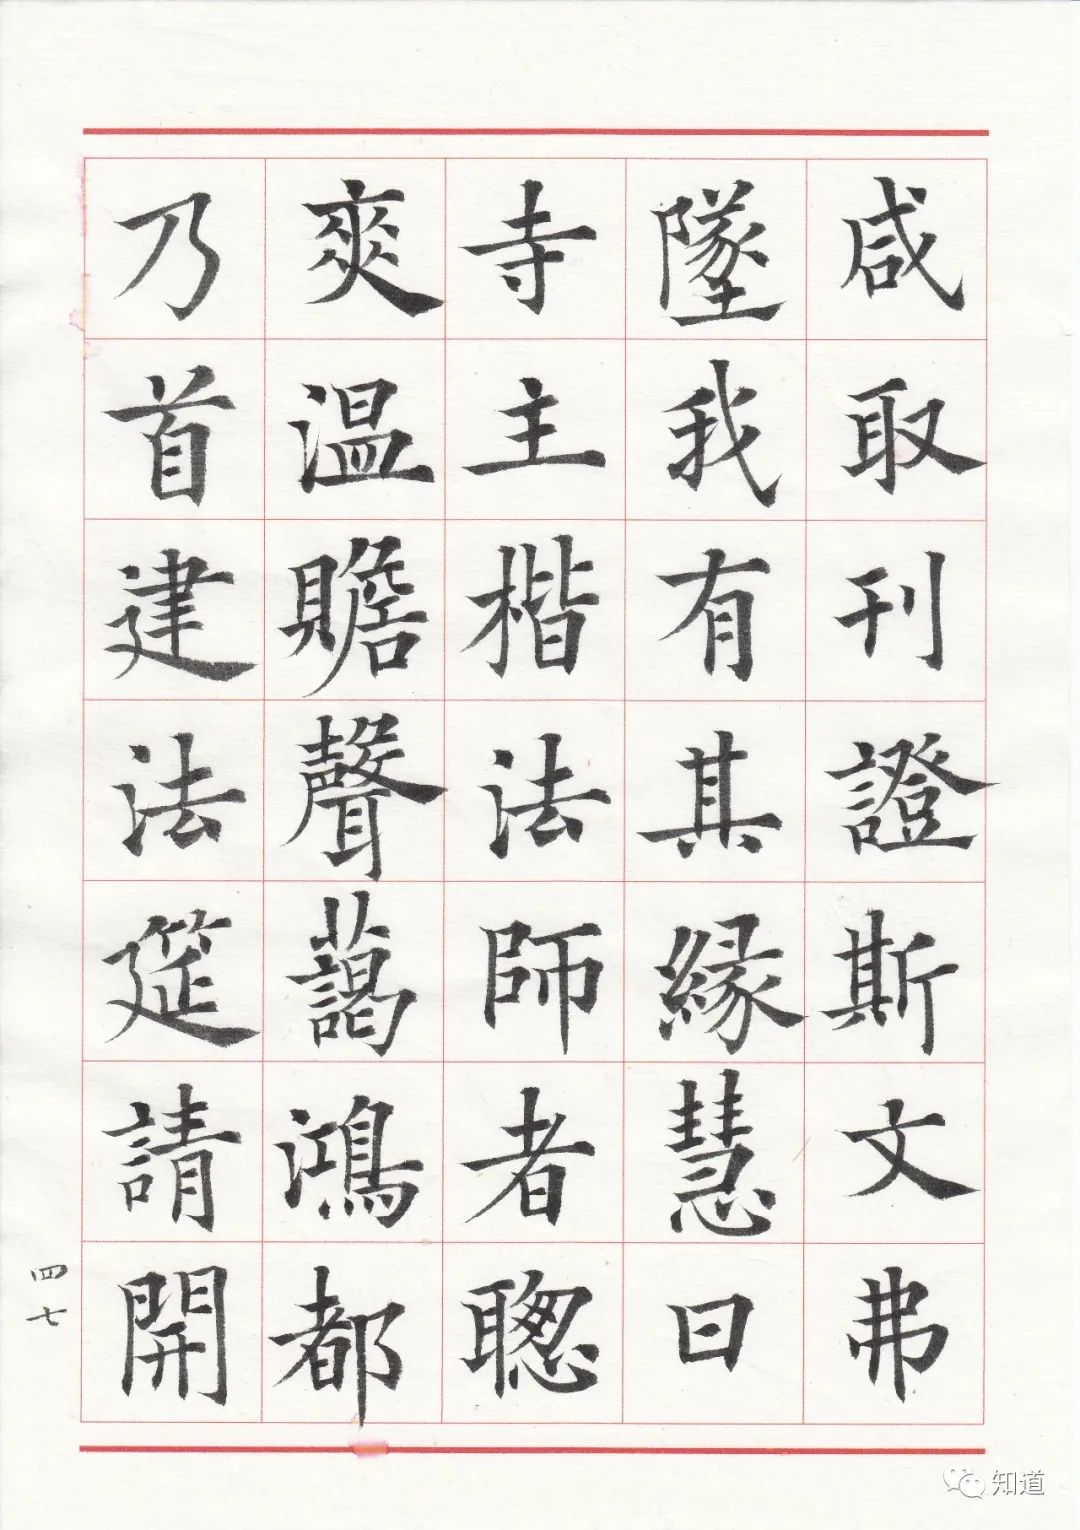 咸取刊證斯文弗
墜我有其緣慧日
寺主楷法師者聰
爽温贍聲藹鴻都
乃首建法筵請開
四七
知道